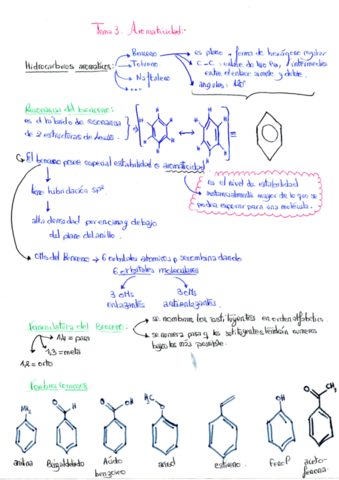 Tema 3. Aromaticidad:
Hidrocarburos aromáticos:
Benceno
Tolueno
Naftaleno
es plano + forma de hexágono regular
C-C: intermedios
entre el enlace simple y doble.
ángulos: 120°
Resonancia del benceno:
es el híbrido de resonancia
de 2 estructuras de Lewis.
H
H
H
H
H
H
H
H
H
H
H
H
El benceno posee especial estabilidad o aromaticidad
es el nivel de estabilidad
sustancialmente mayor de lo que se
podría esperar para una molécula.
hibridación sp²
alta densidad por encima y debajo
del plano del anillo.
OMs del Benceno → 6 orbitales atómicos se combinan dando
6 orbitales moleculares
3 OMs
enlazantes
3 OMs
antienlazantes.
Nomenclatura del Benceno:
se nombran los sustituyentes en orden alfabético.
se numera para q los sustituyentes tendrán números
bajos los más posible.
1,4 = para
1,3 = meta
1,2 = orto
Nombres comunes:
NH₂
O
H
O
OH
H₃C
O
OH
CH₃
O
anilina
Benzaldehído
Ácido
benzoico
anisol
estireno
fenol
aceto-
fenona.